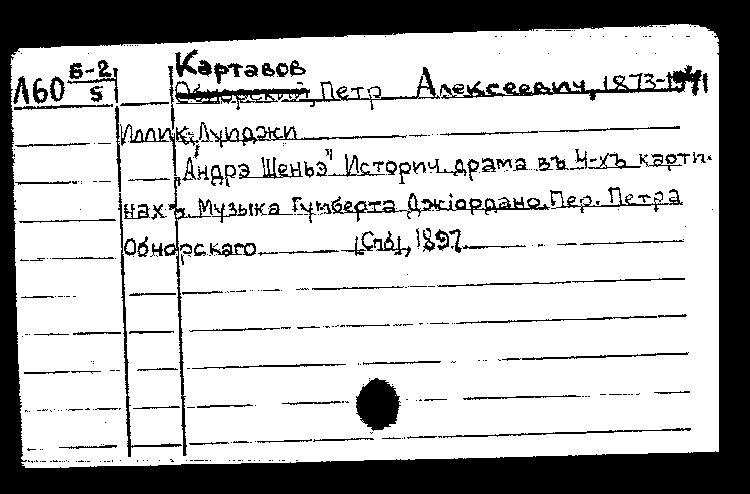 Картавов
Л60 Б-2/5 Обнорский, Петр Алексеевич, 1873-1941
Иллик, Луиджи
„Андрэ Шенье" Историч. драма въ 4-хъ карти-
нахъ. Музыка Гумберта Джіордано. Пер. Петра
Обнорскаго [Спб], 1897